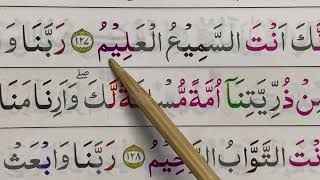 نَّكَ اَنْتَ السَّمِيْعُ الْعَلِيْمُ ۝۱۲۷ رَبَّنَا وَ
مِنْ ذُرِّيَّتِنَاۤ اُمَّةً مُّسْلِمَةً لَّكَ ۖ وَاَرِنَا مَنَا
اَنْتَ التَّوَّابُ الرَّحِيْمُ ۝۱۲۸ رَبَّنَا وَابْعَثْ